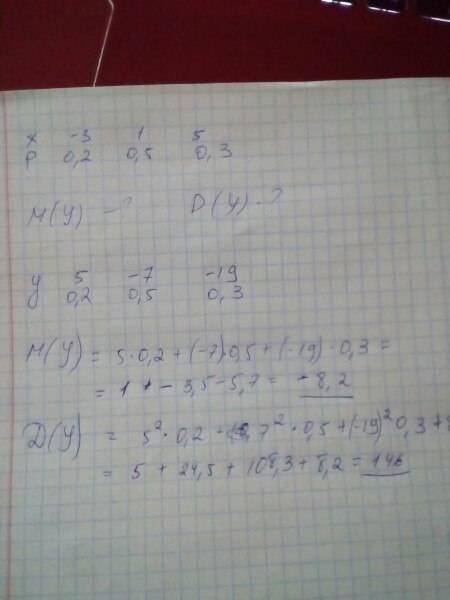 x -3 1 5
p 0,2 0,5 0,3
M(y) - ? D(y) - ?
y 5 -7 -19
0,2 0,5 0,3
M(y) = 5·0,2+(-7)0,5+(-19)·0,3=
= 1 - 3,5-5,7= -8,2
D(y) = 5²·0,2 7²·0,5+(-19)²0,3+8
= 5 + 24,5 + 108,3+8,2=146